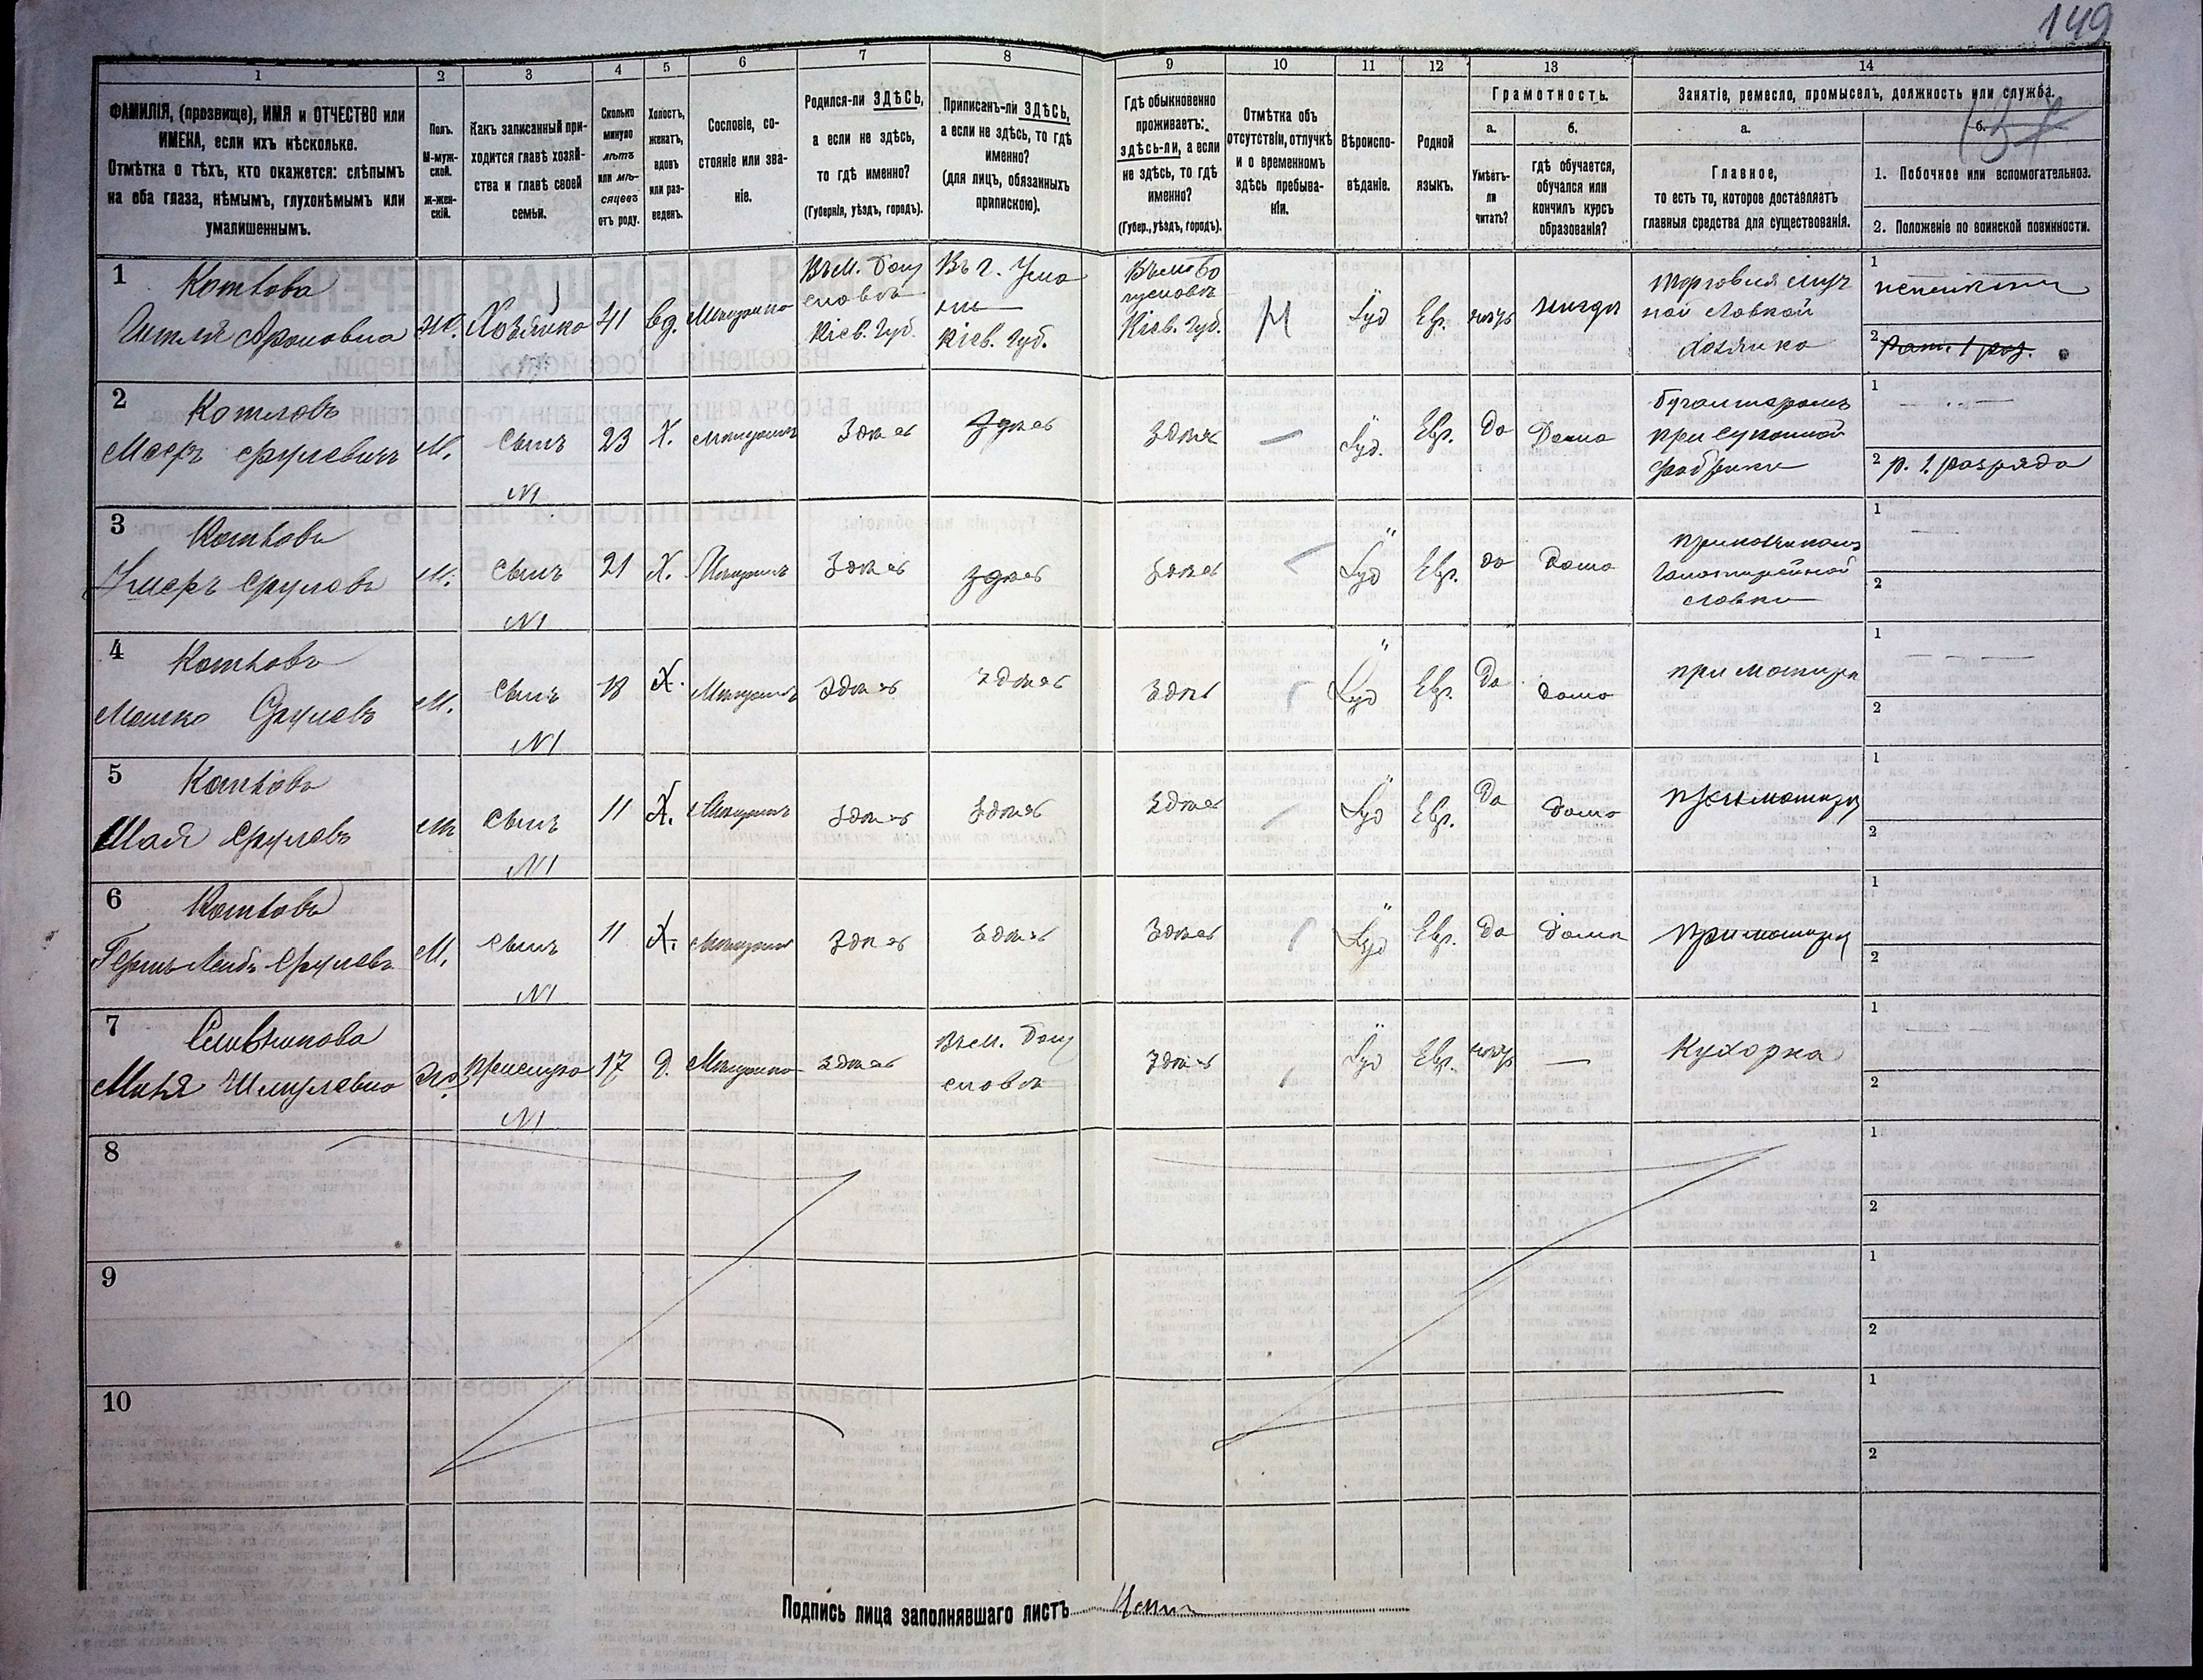 149
1
2
3
4
5
6
7
8
9
10
11
12
13
14
ФАМИЛІЯ, (прозвище), ИМЯ и ОТЧЕСТВО или
ИМЕНА, если ихъ нѣсколько.
Отмѣтка о тѣхъ, кто окажется: слѣпымъ
на оба глаза, нѣмымъ, глухонѣмымъ или
умалишеннымъ.
Полъ.
М-муж-
ской.
Ж-жен-
скій.
Какъ записанный при-
ходится главѣ хозяй-
ства и главѣ своей
семьи.
Сколько
минуло
лѣтъ
или мѣ-
сяцевъ
отъ роду.
Холостъ,
женатъ,
вдовъ
или раз-
веденъ.
Сословіе, со-
стояніе или зва-
ніе.
Родился-ли ЗДѢСЬ,
а если не здѣсь,
то гдѣ именно?
(Губернія, уѣздъ, городъ).
Приписанъ-ли ЗДѢСЬ,
а если не здѣсь, то гдѣ
именно?
(для лицъ, обязанныхъ
припискою).
Гдѣ обыкновенно
проживаетъ:
здѣсь-ли, а если
не здѣсь, то гдѣ
именно?
(Губер., уѣздъ, городъ).
Отмѣтка объ
отсутствіи, отлучкѣ
и о временномъ
здѣсь пребыва-
ніи.
Вѣроиспо-
вѣданіе.
Родной
языкъ.
Грамотность.
а.
Умѣетъ-
ли
читать?
б.
гдѣ обучается,
обучался или
кончилъ курсъ
образованія?
Занятіе, ремесло, промыселъ, должность или служба.
а.
Главное,
то есть то, которое доставляетъ
главныя средства для существованія.
б.
1. Побочное или вспомогательное.
2. Положеніе по воинской повинности.
1
Котлова
Ароновна
Ж.
Хозяйка
41
вд.
Мещанка
Въ м. Богу
славѣ
Кіев. Губ.
Въ г. Ума
ни
Кіев. Губ.
Въ м. Бо
гуславѣ
Кіев. Губ.
Іуд
Евр.
нигдѣ
торговля муч
ной лавкой
хозяйка
1
2 Рат. 1 раз.
2
Котловъ
Мееръ Срулевичъ
М.
сынъ
N1
23
Х.
мещанинъ
Здѣсь
Здѣсь
Здѣсь
Іуд.
Евр.
да
Дома
бухгалтеромъ
при суконной
фабрики
1
2 р. 1. разряда
3
Котловъ
Сруловъ
М.
сынъ
N1
21
Х.
Мещанинъ
Здѣсь
здѣсь
Здѣсь
Іуд
Евр.
да
Дома
прикащикомъ
галантерейной
лавки
1
2
4
Котловъ
Мошко Срулевъ
М.
сынъ
N1
18
Х.
Мещанинъ
Здѣсь
здѣсь
Здѣсь
Іуд
Евр.
Да
дома
при матери
1
2
5
Котловъ
Шая Срулевъ
М.
сынъ
N1
11
Х.
Мещанинъ
Здѣсь
Здѣсь
Здѣсь
Іуд
Евр.
Да
дома
при матери
1
2
6
Котловъ
Гершъ Лейбъ Срулевъ
М.
сынъ
N1
11
Х.
мещанинъ
Здѣсь
Здѣсь
Здѣсь
Іуд
Евр.
Да
Дома
при матери
1
2
7
Шмулевна
Ж.
Прислуга
N1
17
Д.
Мещанка
Здѣсь
Въ м. Богу
славѣ
Здѣсь
Іуд
Евр.
—
Кухарка
1
2
8
1
2
9
1
2
10
1
2
Подпись лица заполнявшаго листъ